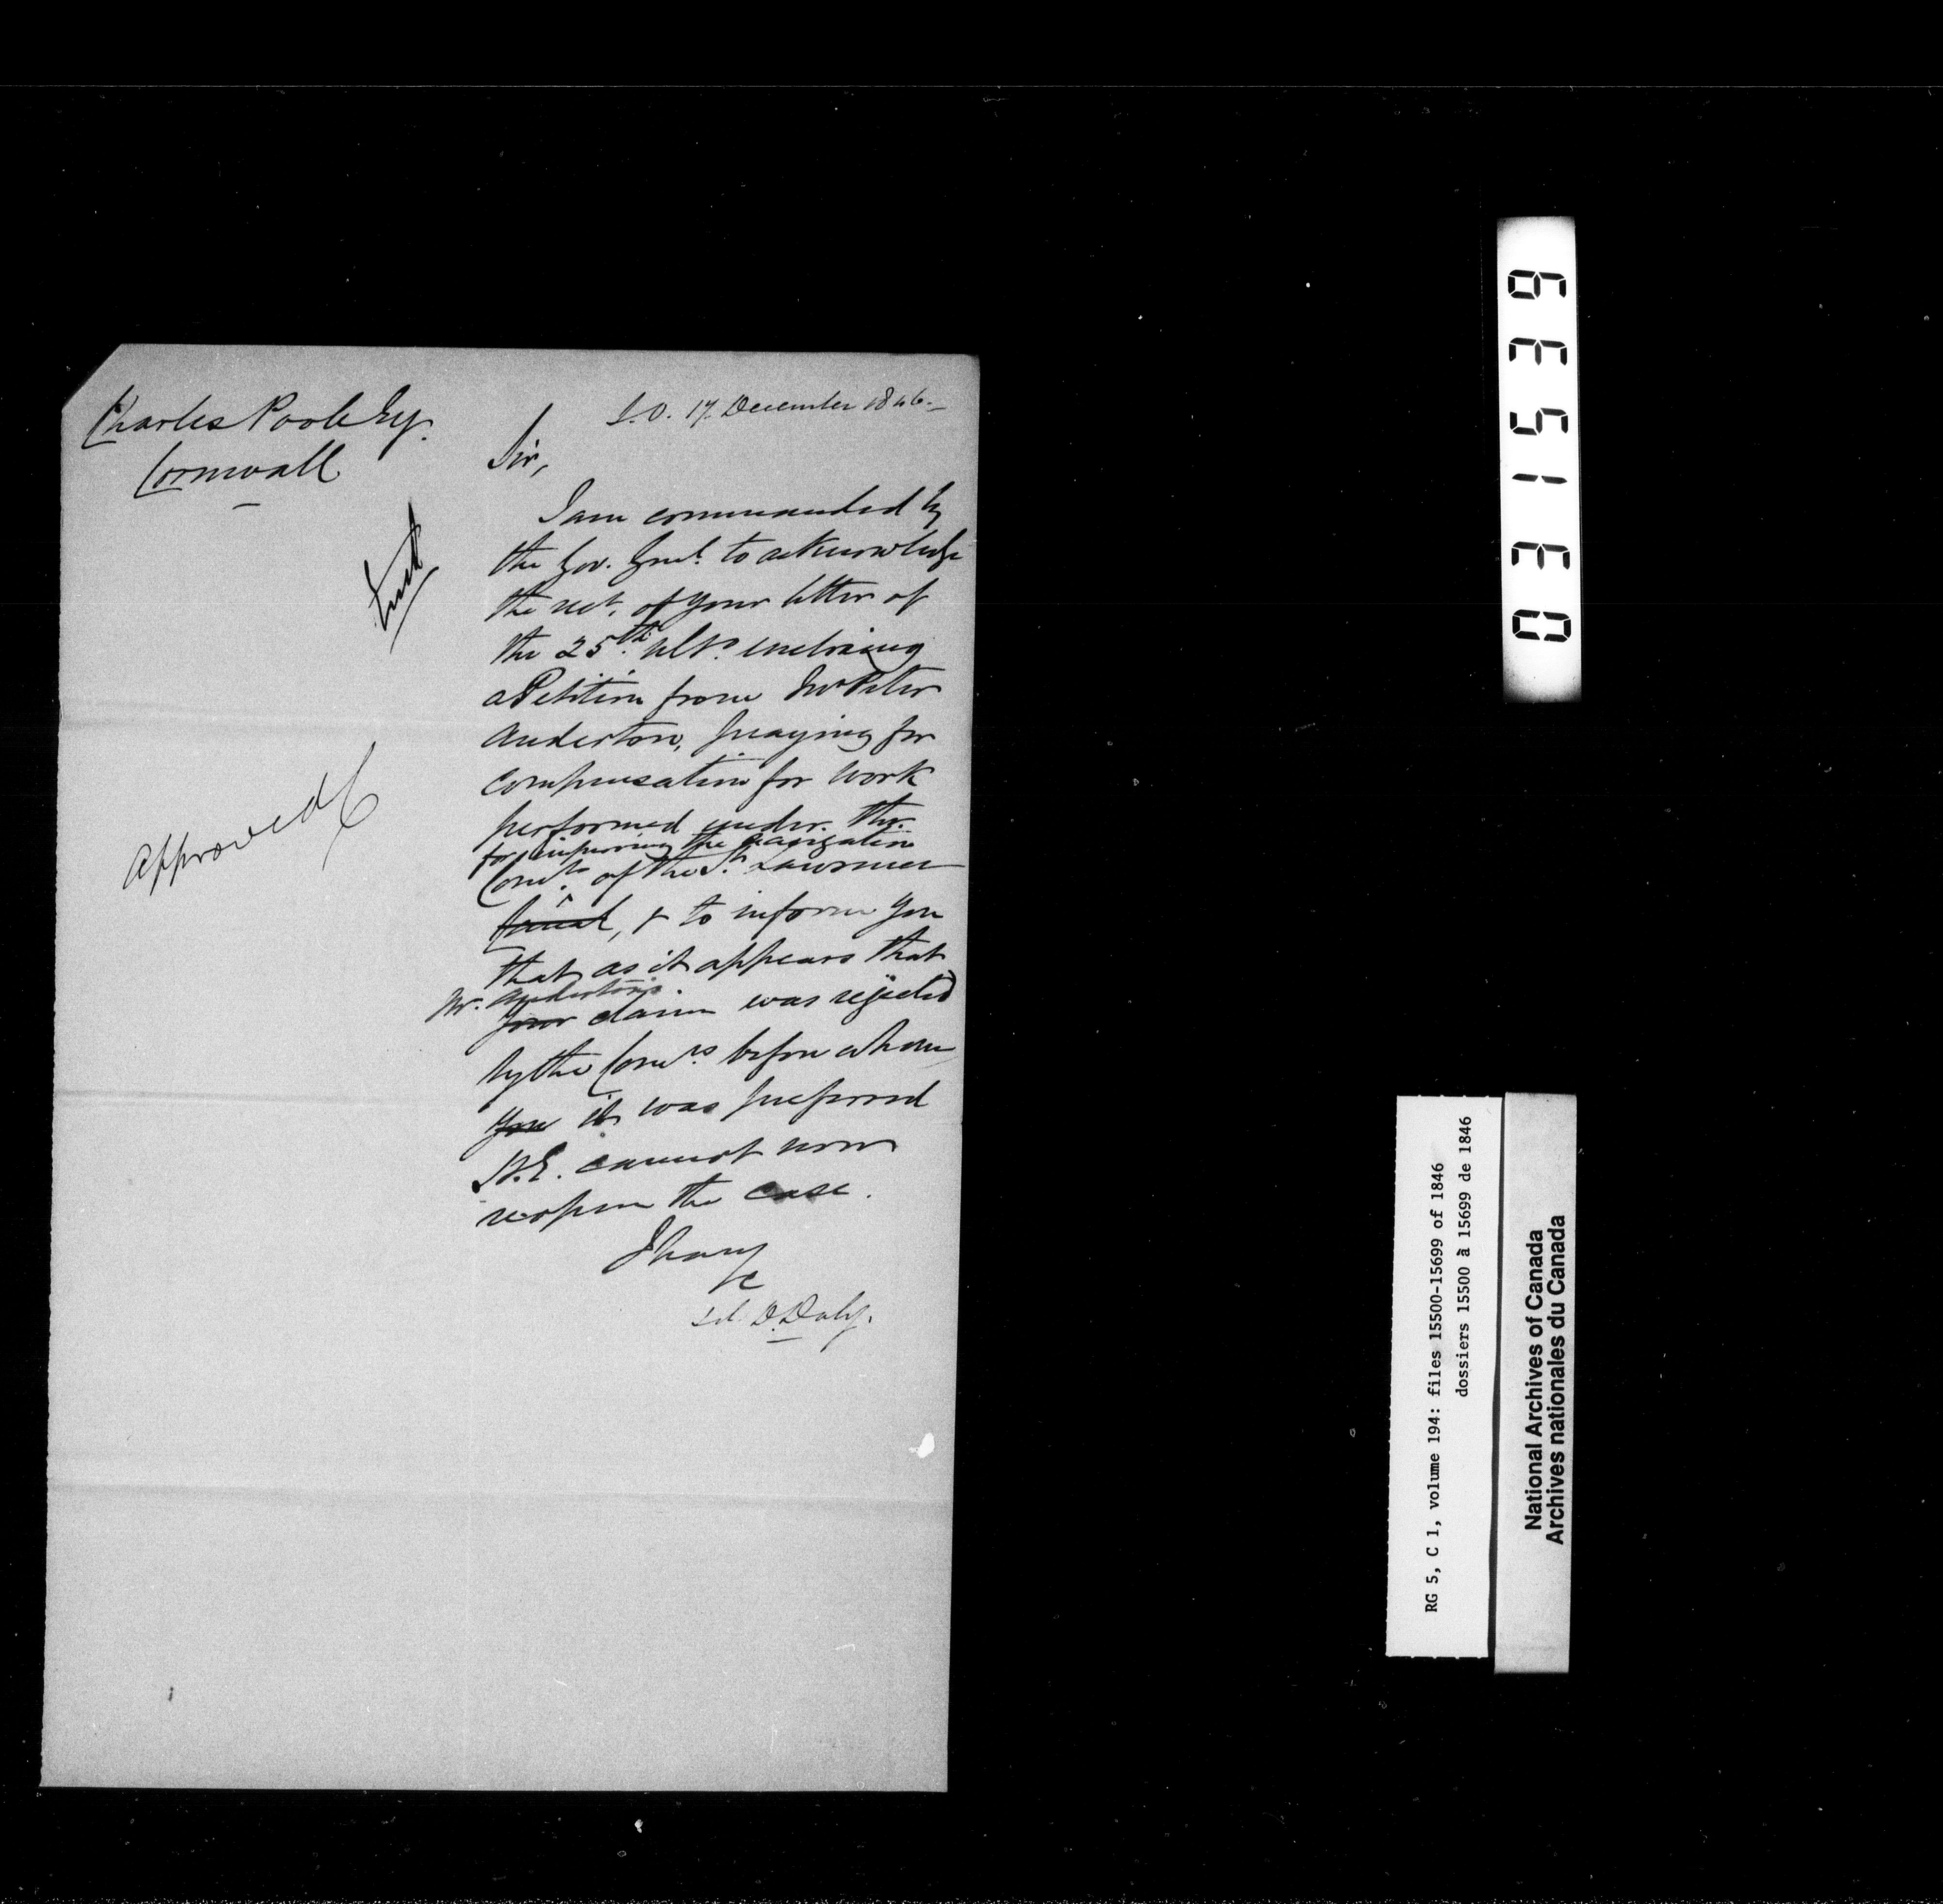 Charles Poole Esq.
Cornwall
S.O. 17. December 1846.
Sir,
I am commanded by
the Gov. Genl. to acknowledge
the rect. of your letter of
the 25th. ulto. enclosing
a Petition from Mr Peter
Anderton, praying for
compensation for work
performed under the
for improving the navigation
Comrs. of the St. Lawrence
Canal, & to inform you
that as it appears that
Mr. Anderton's
your claim was rejected
by the Comrs before whom
you it was preferred
H.E. cannot now
reopen the case.
I have
&c
Sd. D. Daly.
Approved C
RG 5, C 1, volume 194: files 15500-15699 of 1846
dossiers 15500 à 15699 de 1846
National Archives of Canada
Archives nationales du Canada
031539